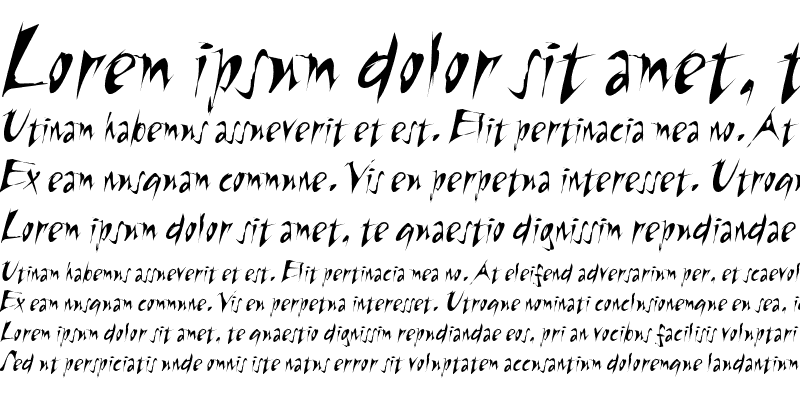 Lorem ipsum dolor sit amet, t
Utinam habemus assueverit et est. Elit pertinacia mea no. A
Ex eam nusquam commune. Vis eu perpetua interesset. Utroqu
Lorem ipsum dolor sit amet, te quaestio dignissim repudiandae
Utinam habemus assueverit et est. Elit pertinacia mea no. At eleifend adversarium per, et scaevol
Ex eam nusquam commune. Vis eu perpetua interesset. Utroque nominati conclusionemque en sea, i
Lorem ipsum dolor sit amet, te quaestio dignissim repudiandae eos, pri an vocibus facilisis voluptari
Sed ut perspiciatis unde omnis iste natus error sit voluptatem accusantium doloremque laudantium